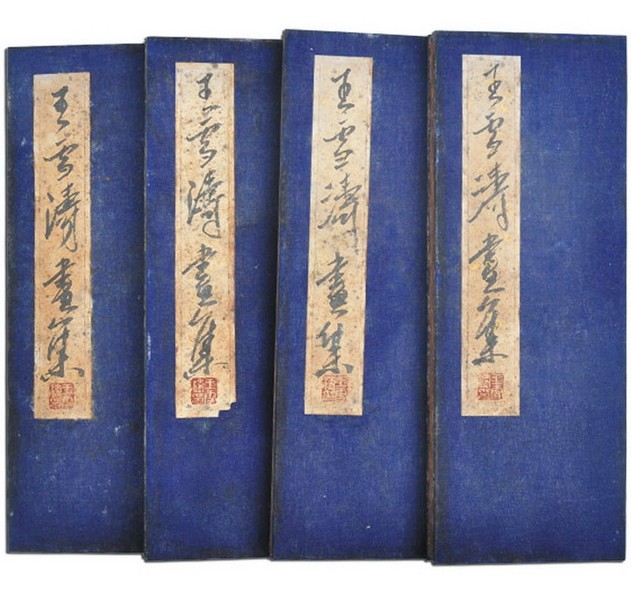 王雪涛畫集
王雪涛畫集
王雪涛畫集
王雪涛畫集